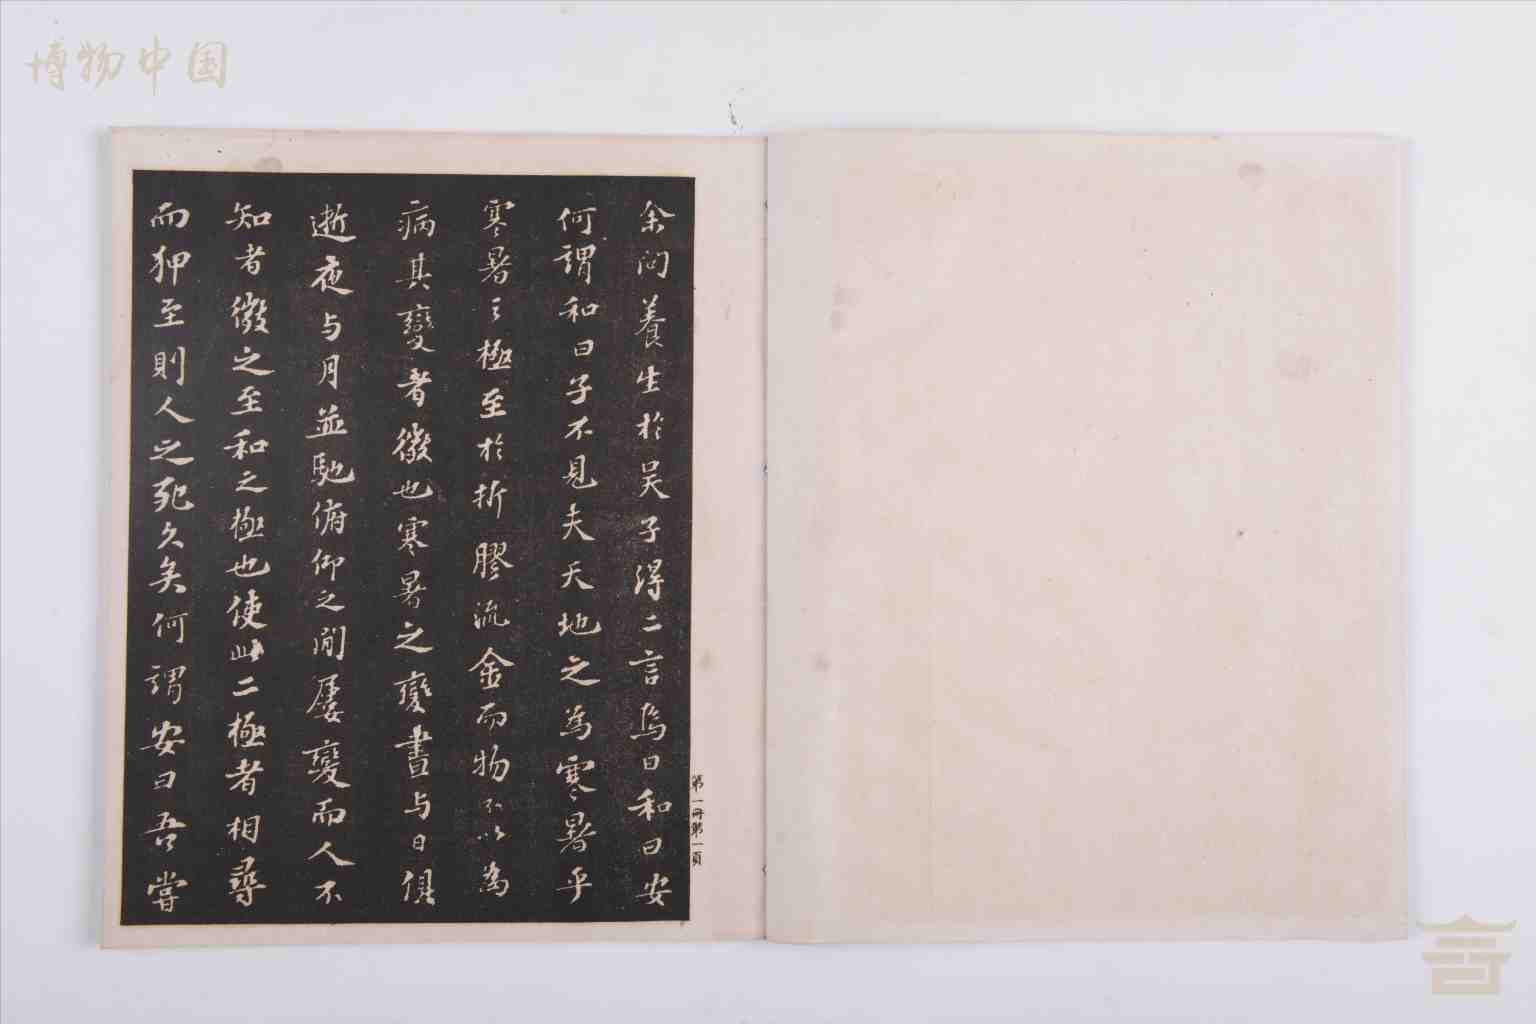 博物中国
余问養生於吴子得二言焉曰和曰安
何謂和曰子不見夫天地之為寒暑乎
寒暑之極至於折膠流金而物不以為
病其變者微也寒暑之變晝与日俱
逝夜与月並馳俯仰之間屡變而人不
知者微之至和之極也使此二極者相尋
而狎至則人之死久矣何謂安曰吾嘗
第一冊第一頁